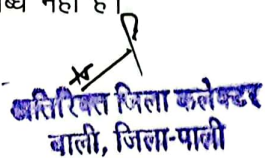 नहीं है।
अतिरिक्त जिला कलेक्टर
बाली, जिला-पाली